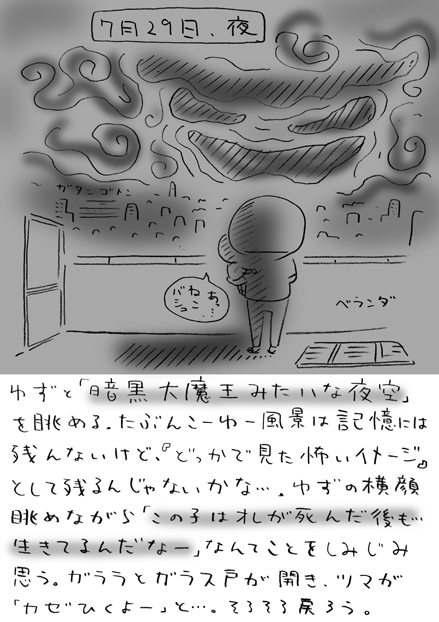 7月29日、夜
ガタンゴトン
あ、
ねこ…
バシュ
ベランダ
ゆずと「暗黒大魔王みたいな夜空」
を眺める。たぶんこーゆー風景は記憶には
残んないけど、『どっかで見た怖いイメージ』
として残るんじゃないかな…。ゆずの横顔
眺めながら「この子はオレが死んだ後も…
生きてるんだなー」なんてことをしみじみ
思う。ガララとガラス戸が開き、ツマが
「カゼひくよー」と…。そろそろ戻ろう。